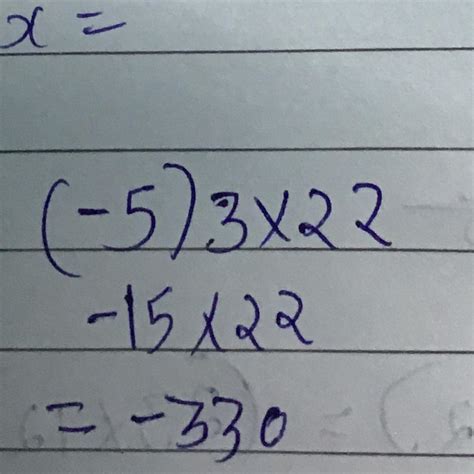 x =
(-5)3×22
-15×22
= -330